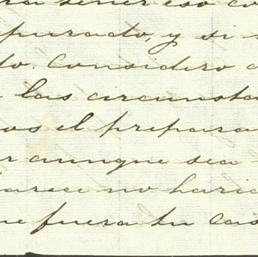 ra tener eso co
purado, y si
do. Considero
las circunsta
os el prepara
r aunque sea
arece no haria
ue fuera tu cas